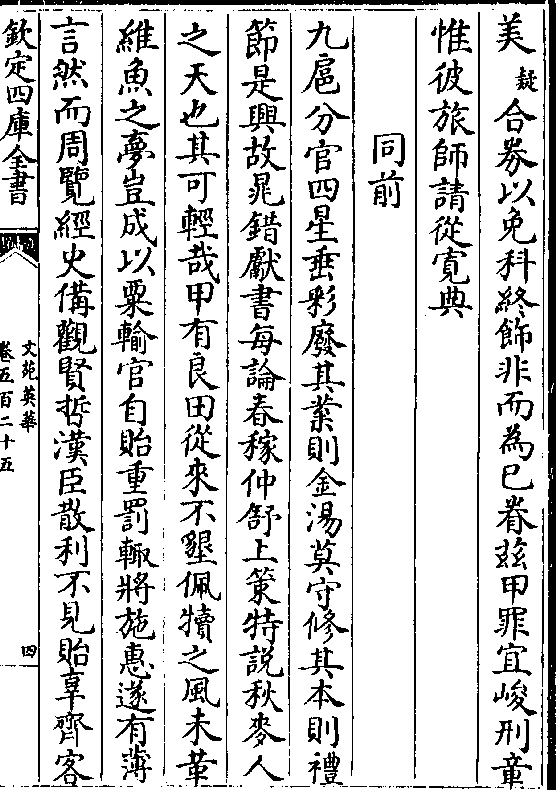 美疑合券以免科終飾非而為已眷兹甲罪宜峻刑章
惟彼旅師請從寛典
同前
九扈分官四星垂彩廢其業則金湯莫守修其本則禮
節是興故晁錯獻書每論春稼仲舒上策特説秋麥人
之天也其可輕哉甲有良田從來不墾佩犢之風未革
維魚之夢豈成以粟輸官自貽重罰輙將施惠遂有薄
言然而周覽經史備觀賢哲漢臣散利不見貽辜齊客
欽定四庫全書
文苑英華
卷五百二十五
四